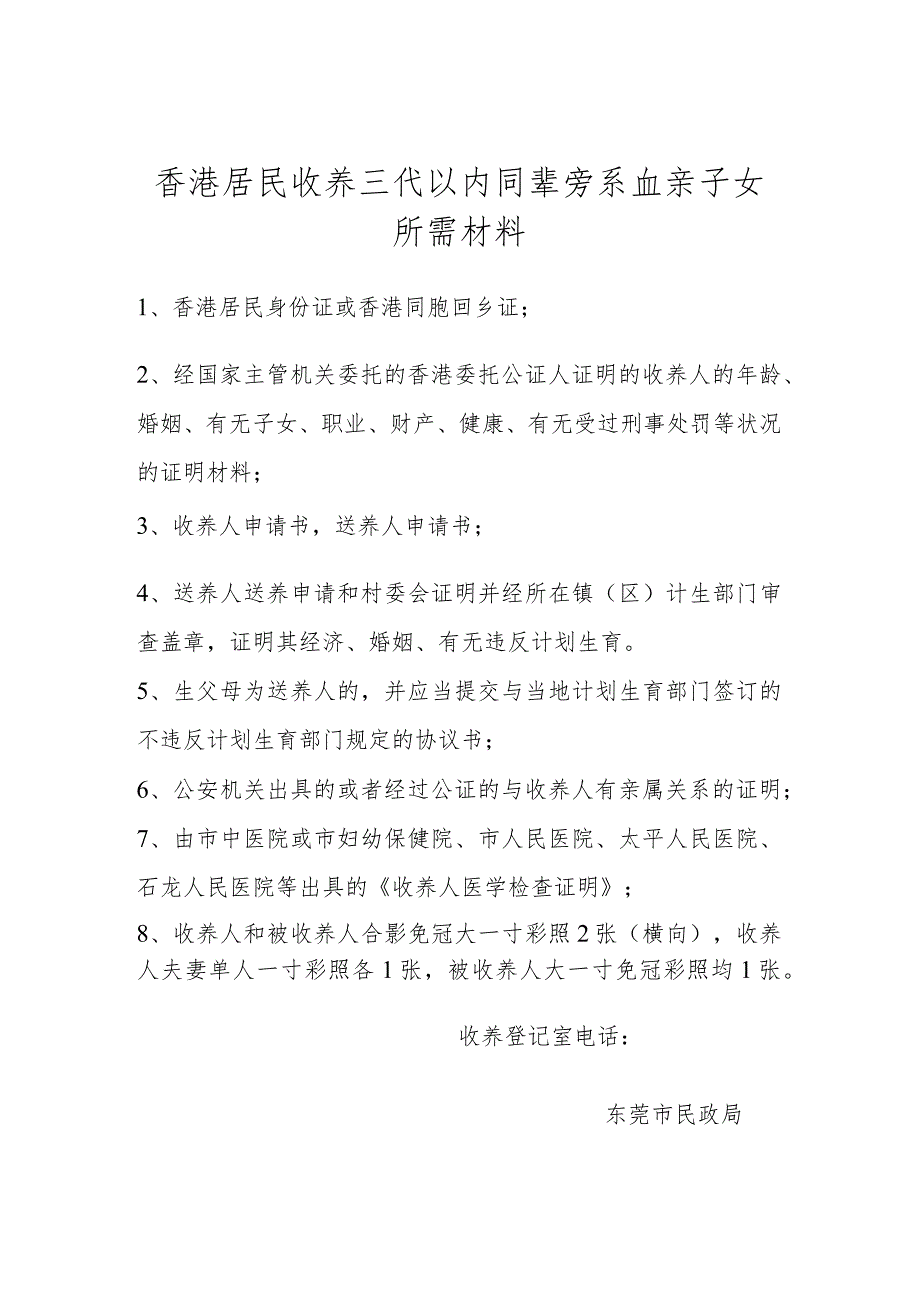 香港居民收养三代以内同辈旁系血亲子女
所需材料
1、香港居民身份证或香港同胞回乡证；
2、经国家主管机关委托的香港委托公证人证明的收养人的年龄、
婚姻、有无子女、职业、财产、健康、有无受过刑事处罚等状况
的证明材料；
3、收养人申请书，送养人申请书；
4、送养人送养申请和村委会证明并经所在镇（区）计生部门审
查盖章，证明其经济、婚姻、有无违反计划生育。
5、生父母为送养人的，并应当提交与当地计划生育部门签订的
不违反计划生育部门规定的协议书；
6、公安机关出具的或者经过公证的与收养人有亲属关系的证明；
7、由市中医院或市妇幼保健院、市人民医院、太平人民医院、
石龙人民医院等出具的《收养人医学检查证明》；
8、收养人和被收养人合影免冠大一寸彩照2张（横向），收养
人夫妻单人一寸彩照各1张，被收养人大一寸免冠彩照均1张。
收养登记室电话：
东莞市民政局